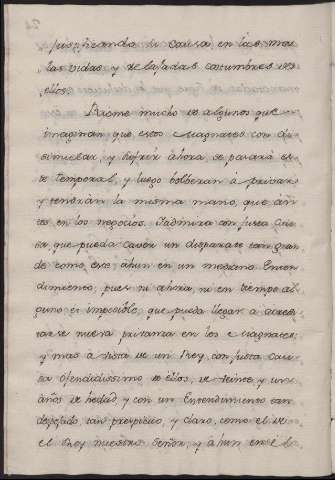 Justificando su causa en las ma
las vidas y relajadas costumbres de
ellos.
Rìome mucho de algunos que
imaginan que estos Magnates con di
simular, y sufrir ahora, se pasará es
te temporal, y luego bolberan à privar
y tendrán la misma mano, que an
tes en los negocios. Y admira con justa cau
sa, que pueda cavèr un disparate tan gran
de como este ahun en un mediano Enten
dimiento, pues ni ahora, ni en tiempo al
guno es imposible, que pueda llegar à
se nueva privanza en los Magnates;
y mas à vista de un Rey, con justa cau
sa ofendidissimo de ellos, de veinte y un
años de hedad y con un Entendimiento tan
despejado, tan perspicáz, y claro, como el de
el Rey nuestro Señor, y ahun en el